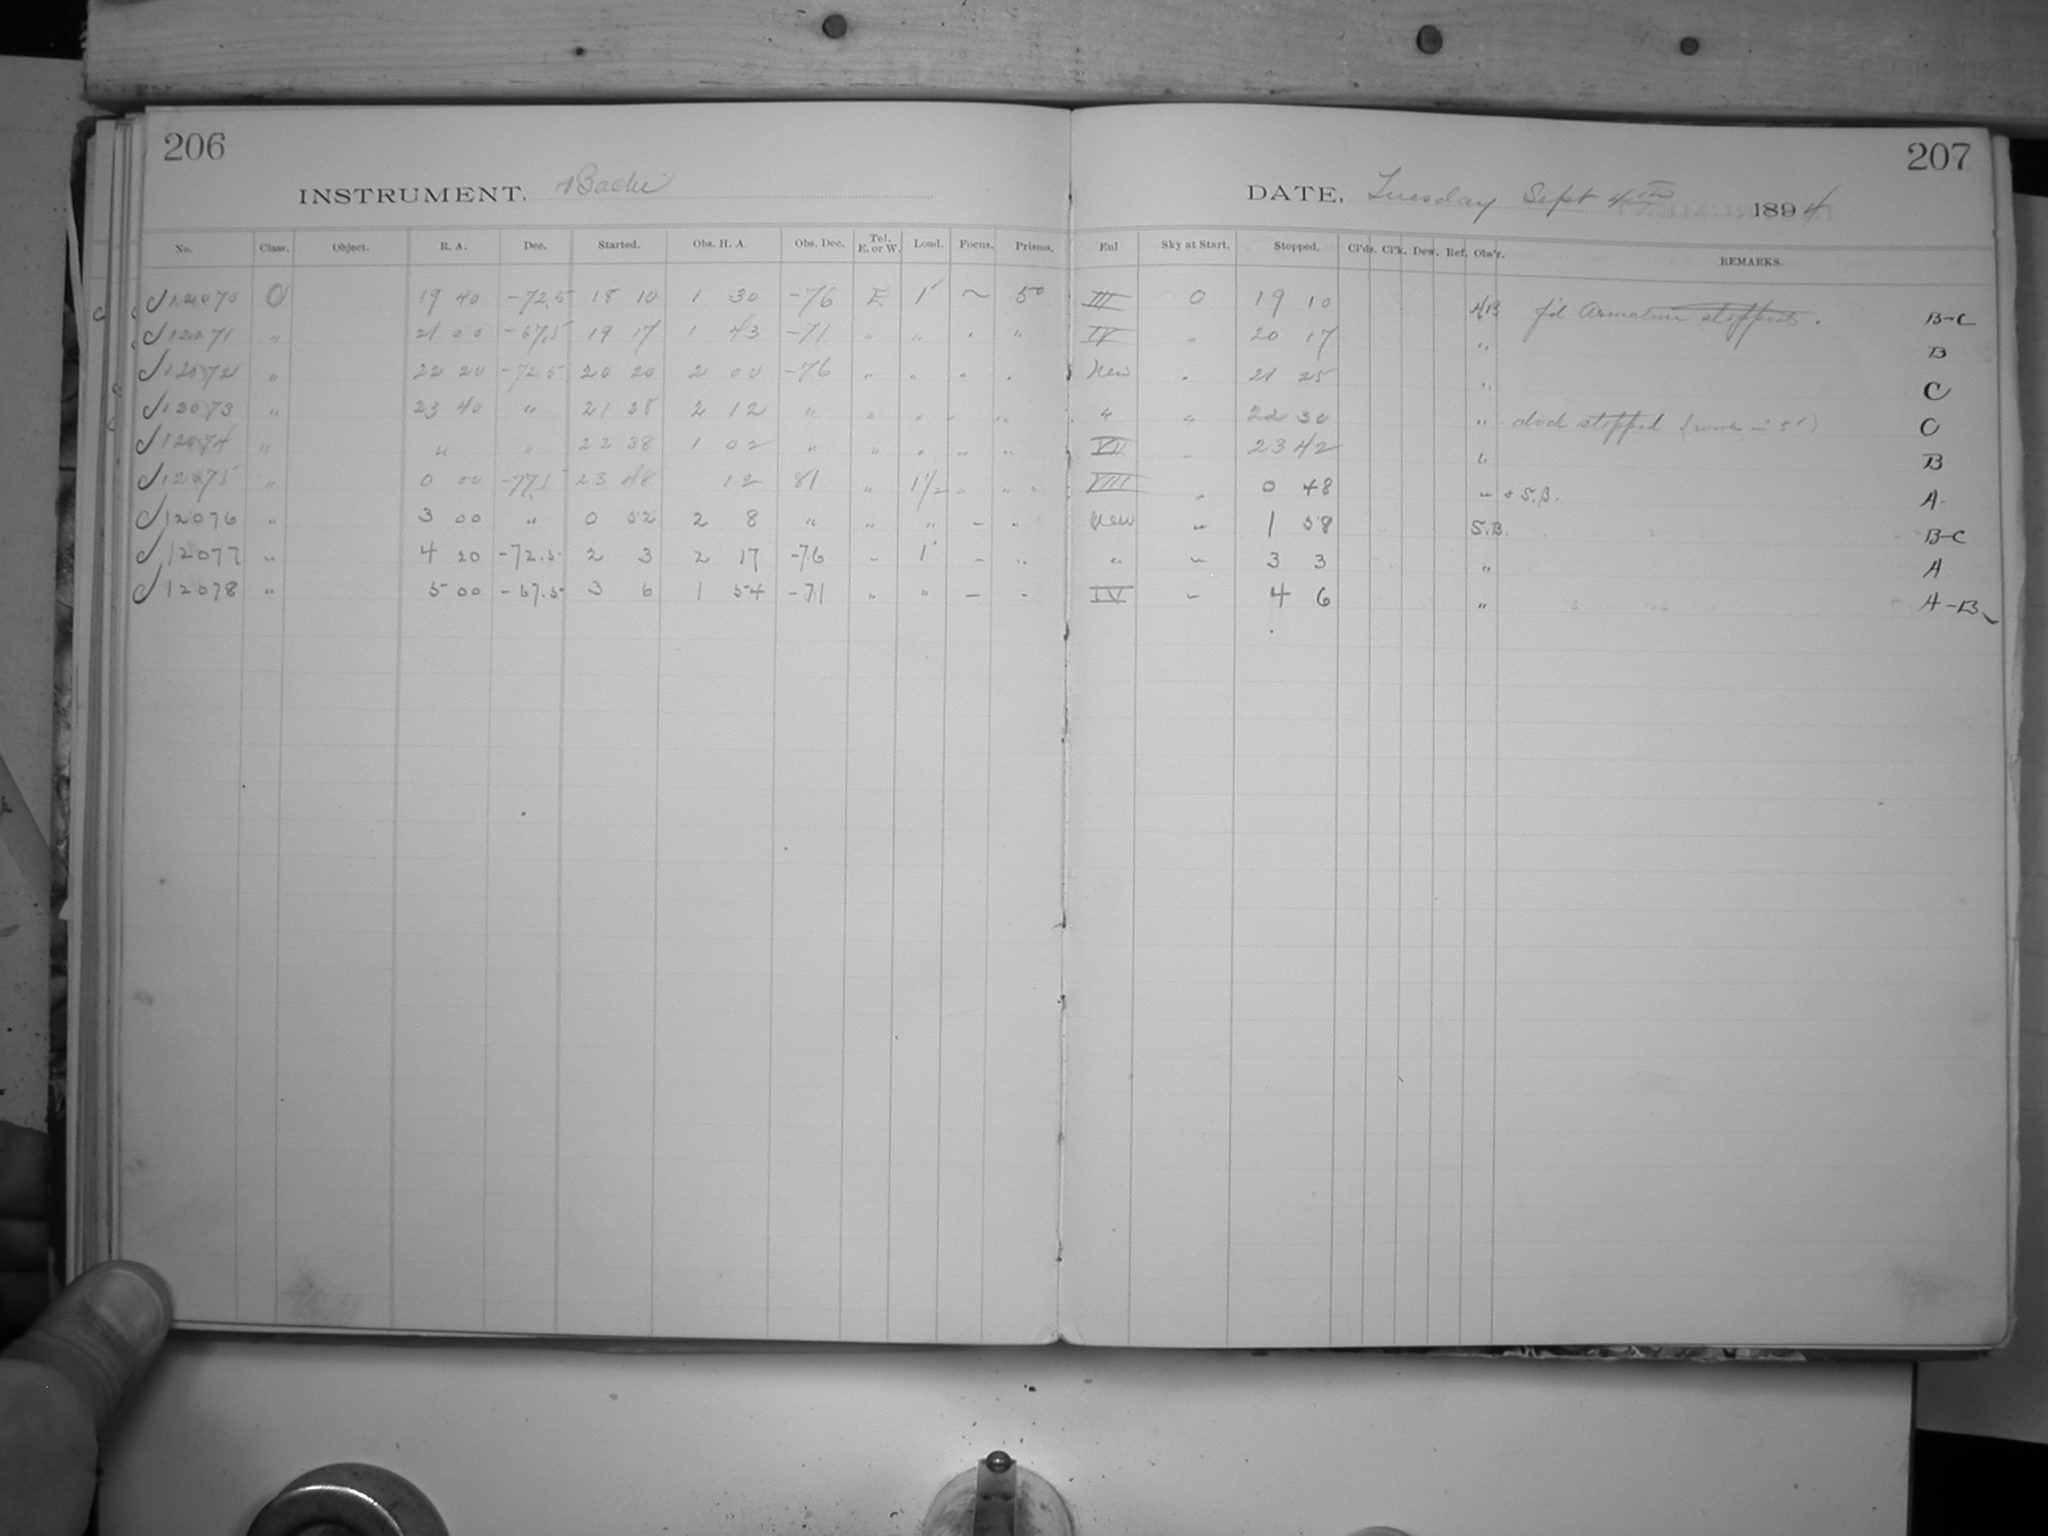 206
207
INSTRUMENT, Bache
DATE, Tuesday Sept 4th 1894
No. Class. Object. R. A. Dec. Started. Obs. H. A. Obs. Dec. Tel. E. or W. Load. Focus. Prisms. Enl Sky at Start. Stopped. Cl'ds. Cl'k. Dew. Ref. Obs'r. REMARKS.
12070 O 19 40 -72.5 18 10 1 30 -76 E 1' ~ 5° III 0 19 10 B-C
12071 " 21 00 -67.5 19 17 1 43 -71 " " " " IV " 20 17 " B
12072 " 22 20 -72.5 20 20 2 00 -76 " " " " New " 21 25 " C
12073 " 23 40 " 21 28 2 12 " " " " " " " 22 30 " clock stopped C
12074 " " " 22 38 1 02 " " " " " VII " 23 42 " B
12075 " 0 00 -77.5 23 48 12 81 " 1 1/2 " " VIII " 0 48 " + S.B. A-
12076 " 3 00 " 0 52 2 8 " " " - " New " 1 58 S.B. B-C
12077 " 4 20 -72.5 2 3 2 17 -76 - 1' - " " " 3 3 " A
12078 " 5 00 -67.5 3 6 1 54 -71 " " - " IV " 4 6 " A-B